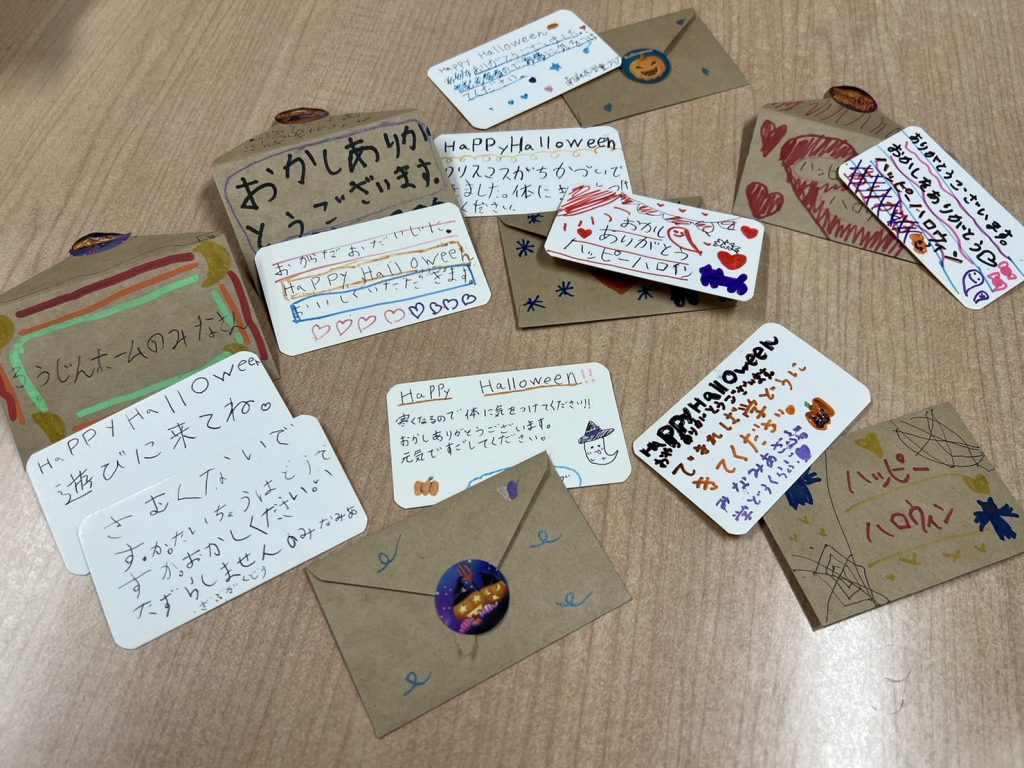 Happy Halloween
てください。
おかしありが
とうございます。
HaPPyHalloween
クリスマスがちかづいて
きました。体に
ください。
おかし
ありがとう
ハッピーハロウィン
ハッピー
ハロ
おりがとうございます。
おかしをありがとう♡
ハッピーハロウィン
HAPPY Halloween
おいしくいただきます
ろうじんホームのみなさん
HaPPY Halloween
遊びに来てね。
さむくないで
すか。たいちょうはどうで
すか。おかしください。
たずらしませんのみなみめ
Happy Halloween!!
寒くなるので体に気をつけてください!!
おかしありがとうございます。
元気ですごしてください。
HaPPy Halloween
おかしありがとうございます
できれば学どうに
きてください
ハッピー
ハロウィン